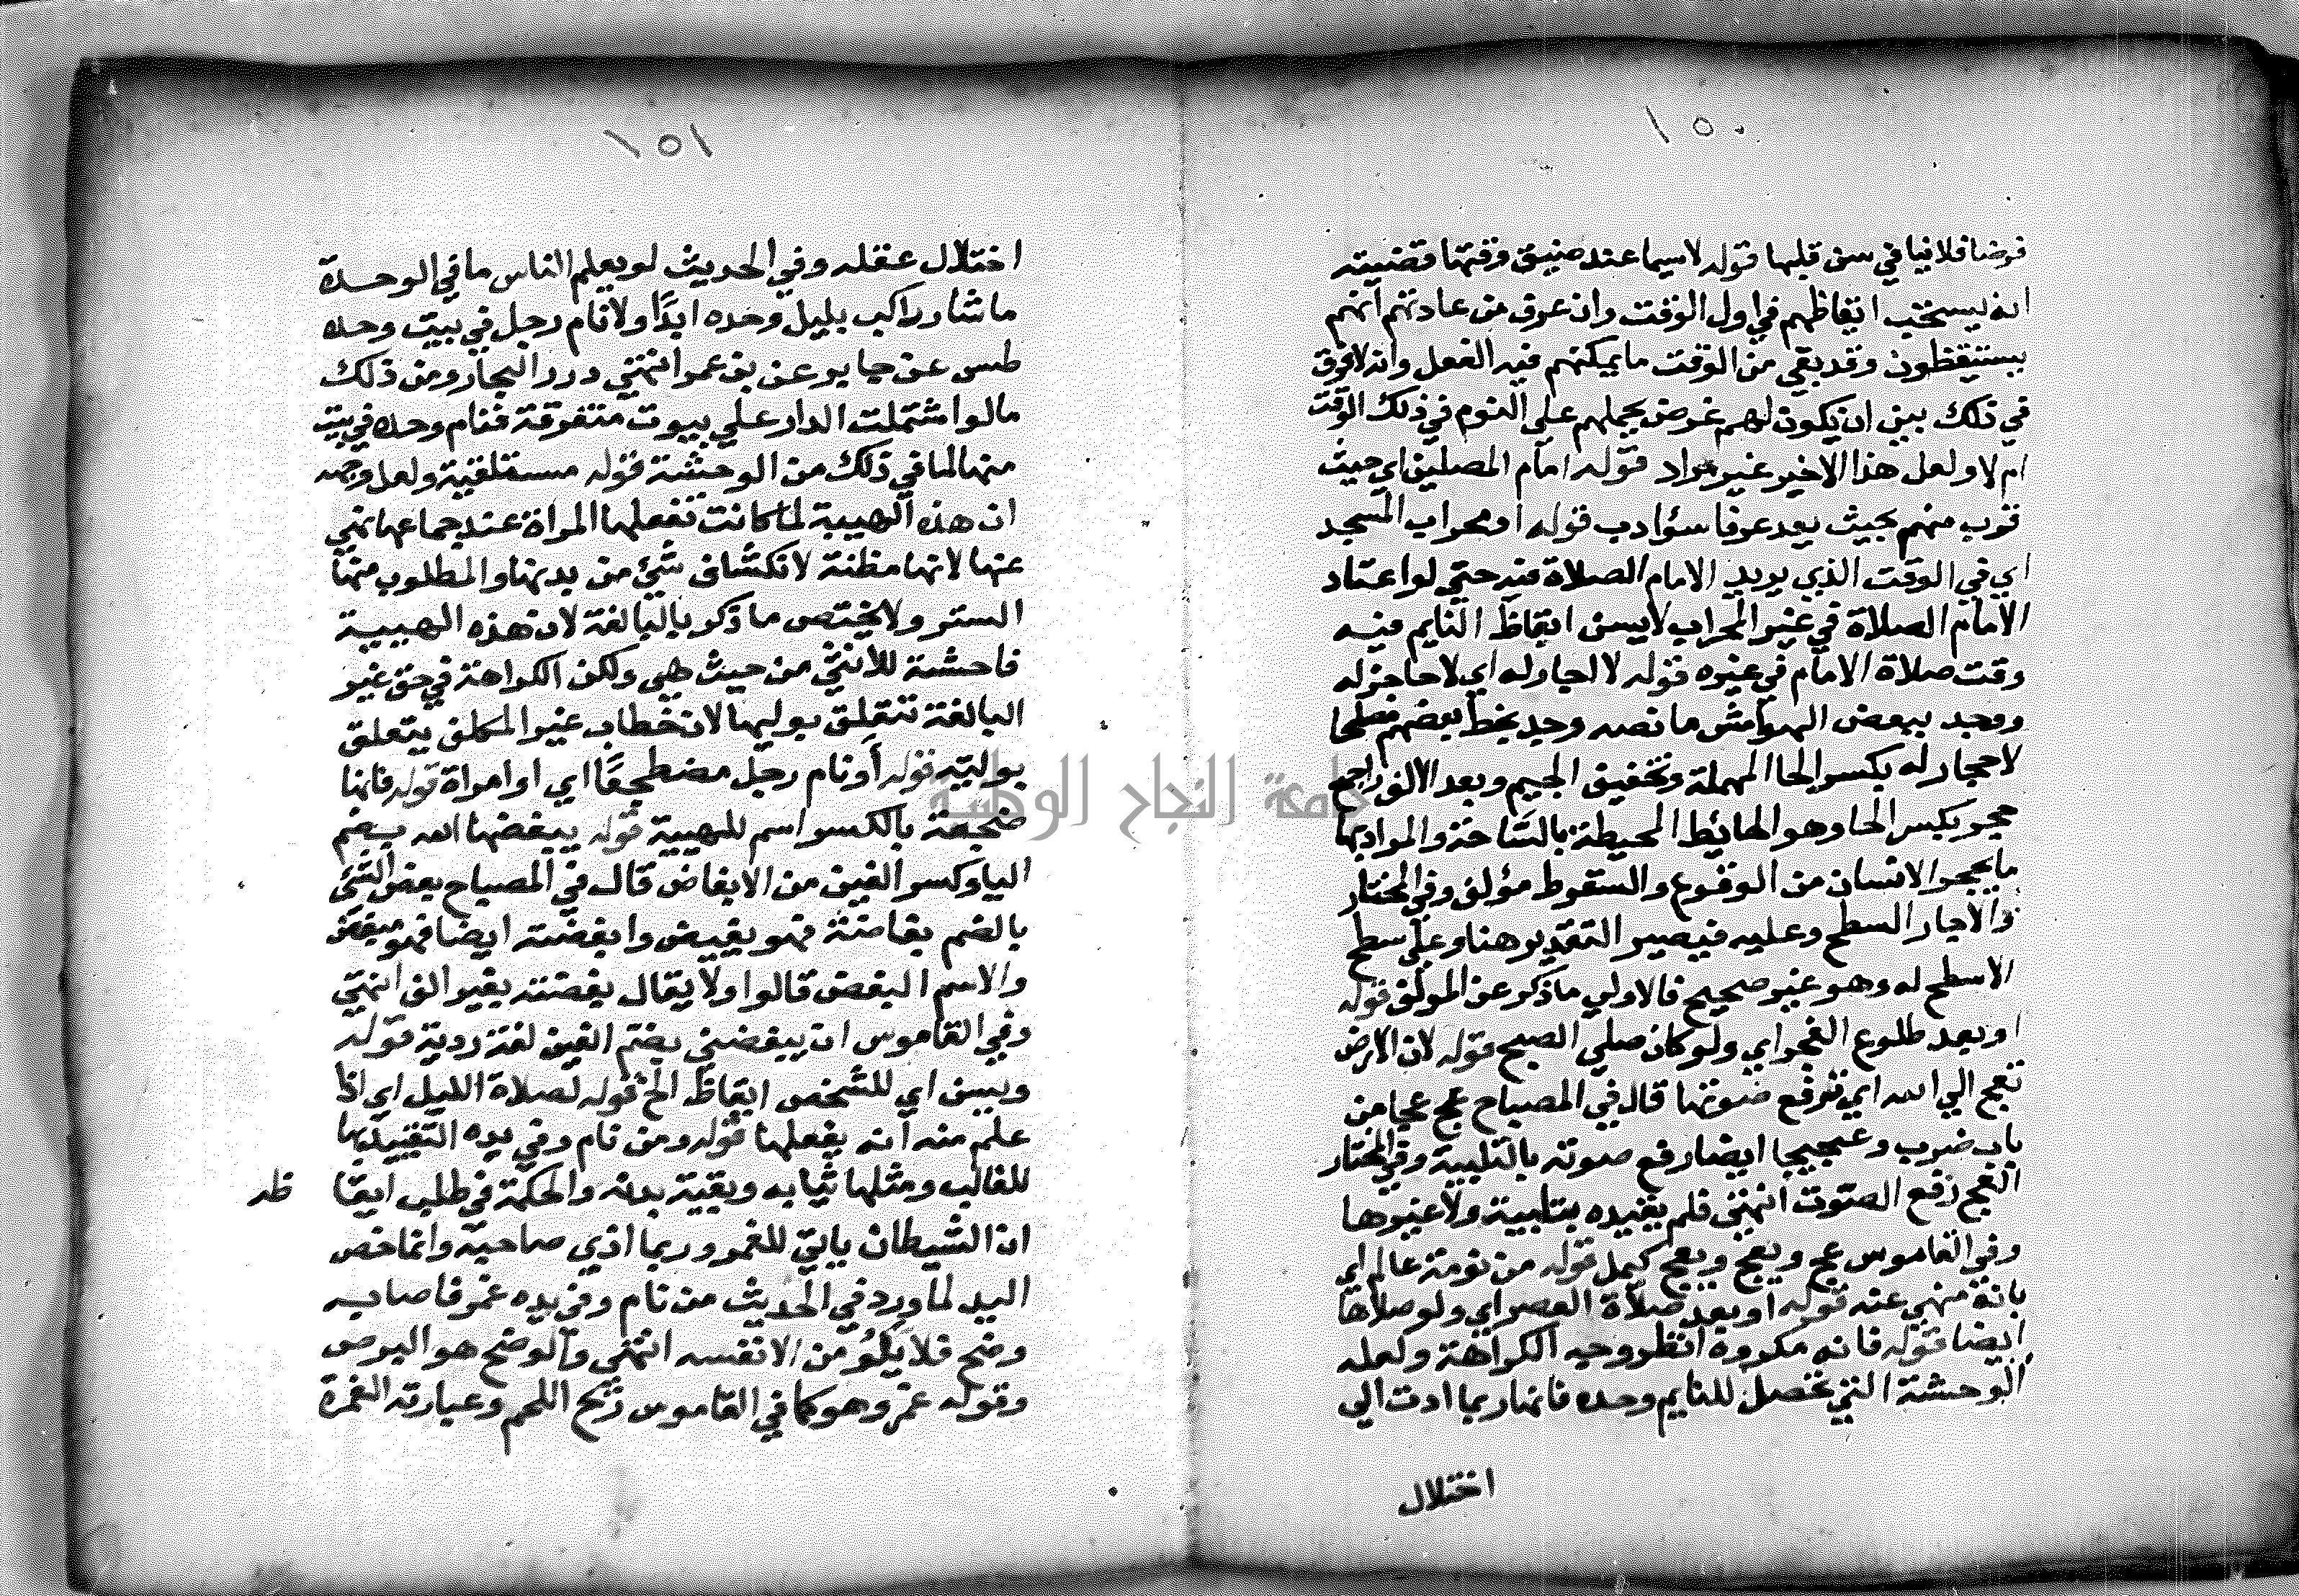 ١٥٠
فرضا فلا نيافي سن قبلها قوله لاسيما عند ضيق وقتها قضيته
انه يستحب ايقاظهم في اول الوقت وان عرف من عادتهم انهم
يستيقظون وقد بقي من الوقت ما يمكنهم فيه الفعل وانه لا فرق
في ذلك بين ان يكون لهم غرض يحملهم على النوم في ذلك الوقت
ام لا ولعل هذا الاخير غير مراد قوله امام المصلين اي حيث
قرب منهم بحيث يعد عرفا سؤ ادب قوله او محراب المسجد
اي في الوقت الذي يريد الامام الصلاة فيه حتي لو اعتاد
الامام الصلاة في غير المحراب لا يسن ايقاظ النايم فيه
وقت صلاة الامام في غيره قوله لا احجار له اي لا حاجز له
ووجد ببعض الهوامش ما نصه وجد بخط بعضهم مصلحا
لا حجار له بكسر الحا المهملة وتخفيف الجيم وبعد الالف راجمع
حجر بكسر الحا وهو الحائط المحيطة بالساحة والمراد بها
ما يحجر الانسان من الوقوع والسقوط مؤلف وفي المختار
والاجار السطح وعليه فيصير التقدير هنا وعلى سطح
لا سطح له وهو غير صحيح فالاولي ما ذكر عن المولف قوله
او بعد طلوع الفجر اي ولو كان صلي الصبح قوله لان الارض
تعج الي الله اي ترفع صوتها قال في المصباح عج عجا من
باب ضرب وعجيجا ايضا رفع صوته بالتلبية وفي المختار
العج رفع الصوت انتهي فلم يقيده بتلبية ولا غيرها
وفي القاموس عج ويعج ويعج كيمل قوله من نومة عالم اي
بانه منهي عنه قوله او بعد صلاة العصر اي ولو صلاها
ايضا قوله فانه مكروه انظر وجه الكراهة ولعله
الوحشة التي تحصل للنايم وحده فانها ربما ادت الي
اختلال
١٥١
اختلال عقله وفي الحديث لو يعلم الناس ما في الوحدة
ما سار راكب بليل وحده ابدًا ولا نام رجل في بيت وحده
طس عن جابر عن بن عمر انتهي درر البحار ومن ذلك
ما لو اشتملت الدار على بيوت متفرقة فنام وحده في بيت
منها لما في ذلك من الوحشة قوله مستلقية ولعل وجهه
ان هذه الهيبة لما كانت تفعلها المراة عند جماعها نهي
عنها لانها مظنة لانكشاف شئ من بدنها والمطلوب منها
الستر ولا يختص ما ذكر بالبالغة لان هذه الهيبة
فاحشة للانثي من حيث هي ولكن الكراهة في حق غير
البالغة تتعلق بوليها لان خطاب غير المكلف يتعلق
بوليه قوله أو نام رجل مضطجعًا اي او امراة قوله فانها
ضجعة بالكسر اسم للهيبة قوله يبغضها الله بضم
اليا وكسر الغين من الابغاض قال في المصباح بعض الشئ
بالضم بغاضة فهو بغيض وابغضته ايضا فهو مبغض
والاسم البغض قالوا ولا يقال بغضته بغير الف انتهي
وفي القاموس ان يبغضني بضم الغين لغة ردية قوله
ويسن اي للشخص ايقاظ الخ قوله لصلاة الليل اي اذا
علم منه انه يفعلها قوله ومن نام وفي يده التقييد بها
للغالب ومثلها ثيابه وبقية بدنه والحكمة في طلب ايقا ظه
ان الشيطان ياتي للغمر وربما اذي صاحبه وانما خص
اليد لما ورد في الحديث من نام وفي يده غمر فاصابه
وضح فلا يَلُومَن الا نفسه انتهي والوضح هو البرص
وقوله غمر وهو كما في القاموس زنخ اللحم وعبارته الغمرة